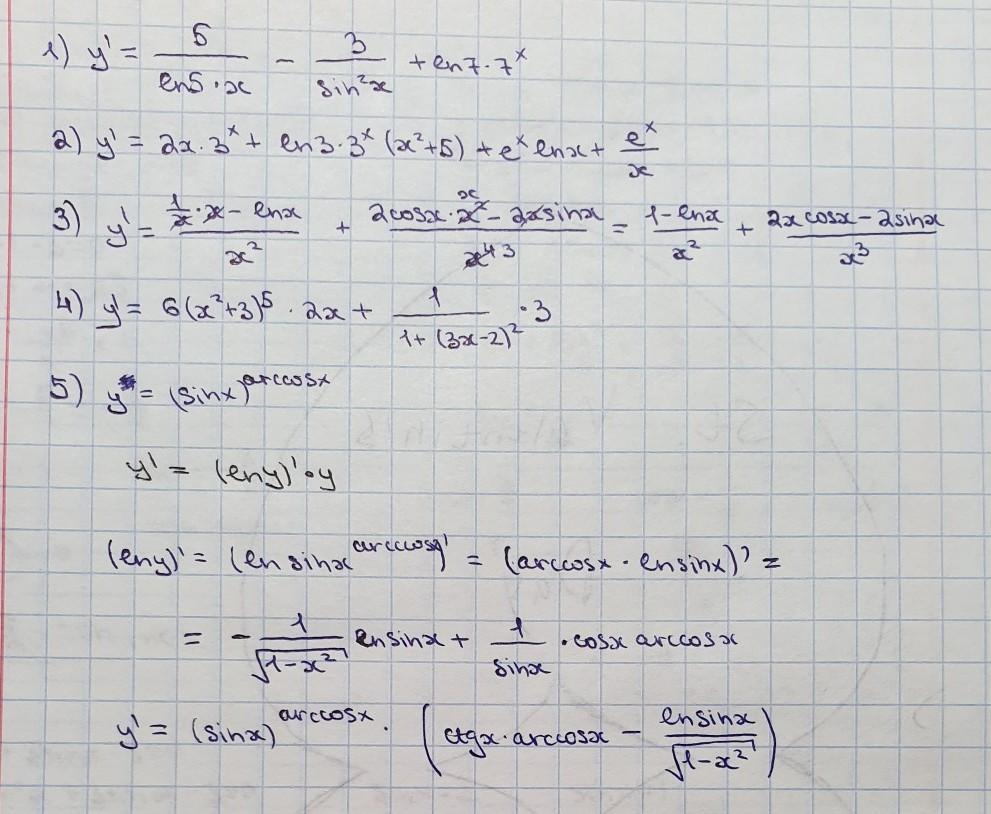 1) y' = 5/(ln5·x) - 3/(sin²x) + ln7·7ˣ
2) y' = 2x·3ˣ + ln3·3ˣ (x²+5) + eˣ lnx + eˣ/x
3) y' = (1/x·x - lnx)/x² + (2cosx·x² - 2x sinx)/x⁴ ³ = (1-lnx)/x² + (2x cosx - 2sinx)/x³
4) y' = 6(x²+3)⁵ · 2x + 1/(1+(3x-2)²) ·3
5) y = (sinx)^arccosx
y' = (lny)'·y
(lny)' = (ln sinx^arccosx)' = (arccosx · lnsinx)' =
= - 1/√(1-x²) lnsinx + 1/sinx · cosx arccosx
y' = (sinx)^arccosx · (ctgx·arccosx - lnsinx/√(1-x²))